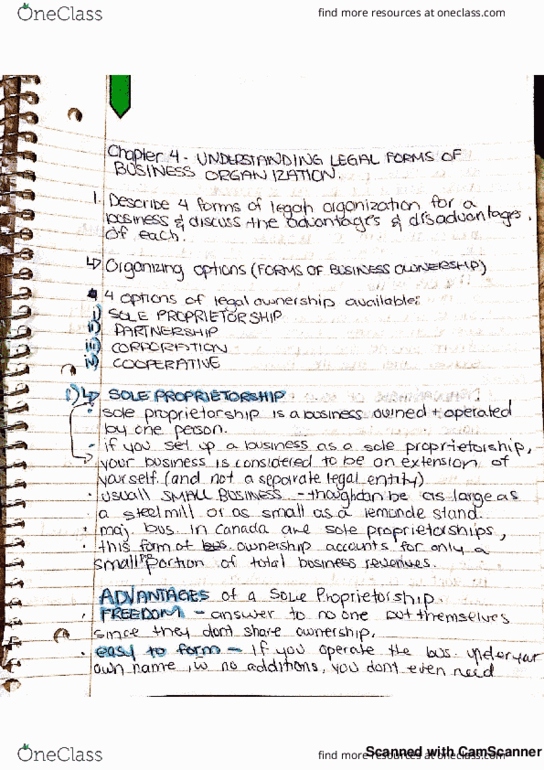 OneClass
find more resources at oneclass.com
Chapter 4 - UNDERSTANDING LEGAL FORMS OF
BUSINESS ORGANIZATION.
1. Describe 4 forms of legal organization for a
business & discuss the advantages & disadvantages
of each.
↳ Organizing options (FORMS OF BUSINESS OWNERSHIP)
4 options of legal ownership available:
i) SOLE PROPRIETORSHIP
ii) PARTNERSHIP
iii) CORPORATION
iv) COOPERATIVE
i) ↳ SOLE PROPRIETORSHIP
· sole proprietorship is a business owned + operated
by one person.
- if you set up a business as a sole proprietorship,
your business is considered to be an extension of
yourself (and not a separate legal entity)
· usuall SMALL BUSINESS - though can be as large as
a steel mill or as small as a lemonde stand.
· maj bus. in Canada are sole proprietorships,
· this form of bus ownership accounts for only a
small proportion of total business revenues.
ADVANTAGES of a Sole Proprietorship.
· FREEDOM - answer to no one but themselves
since they dont share ownership.
· easy to form - If you operate the bus. under your
own name, w no additions, you dont even need
OneClass
find more resources at oneclass.com
Scanned with CamScanner